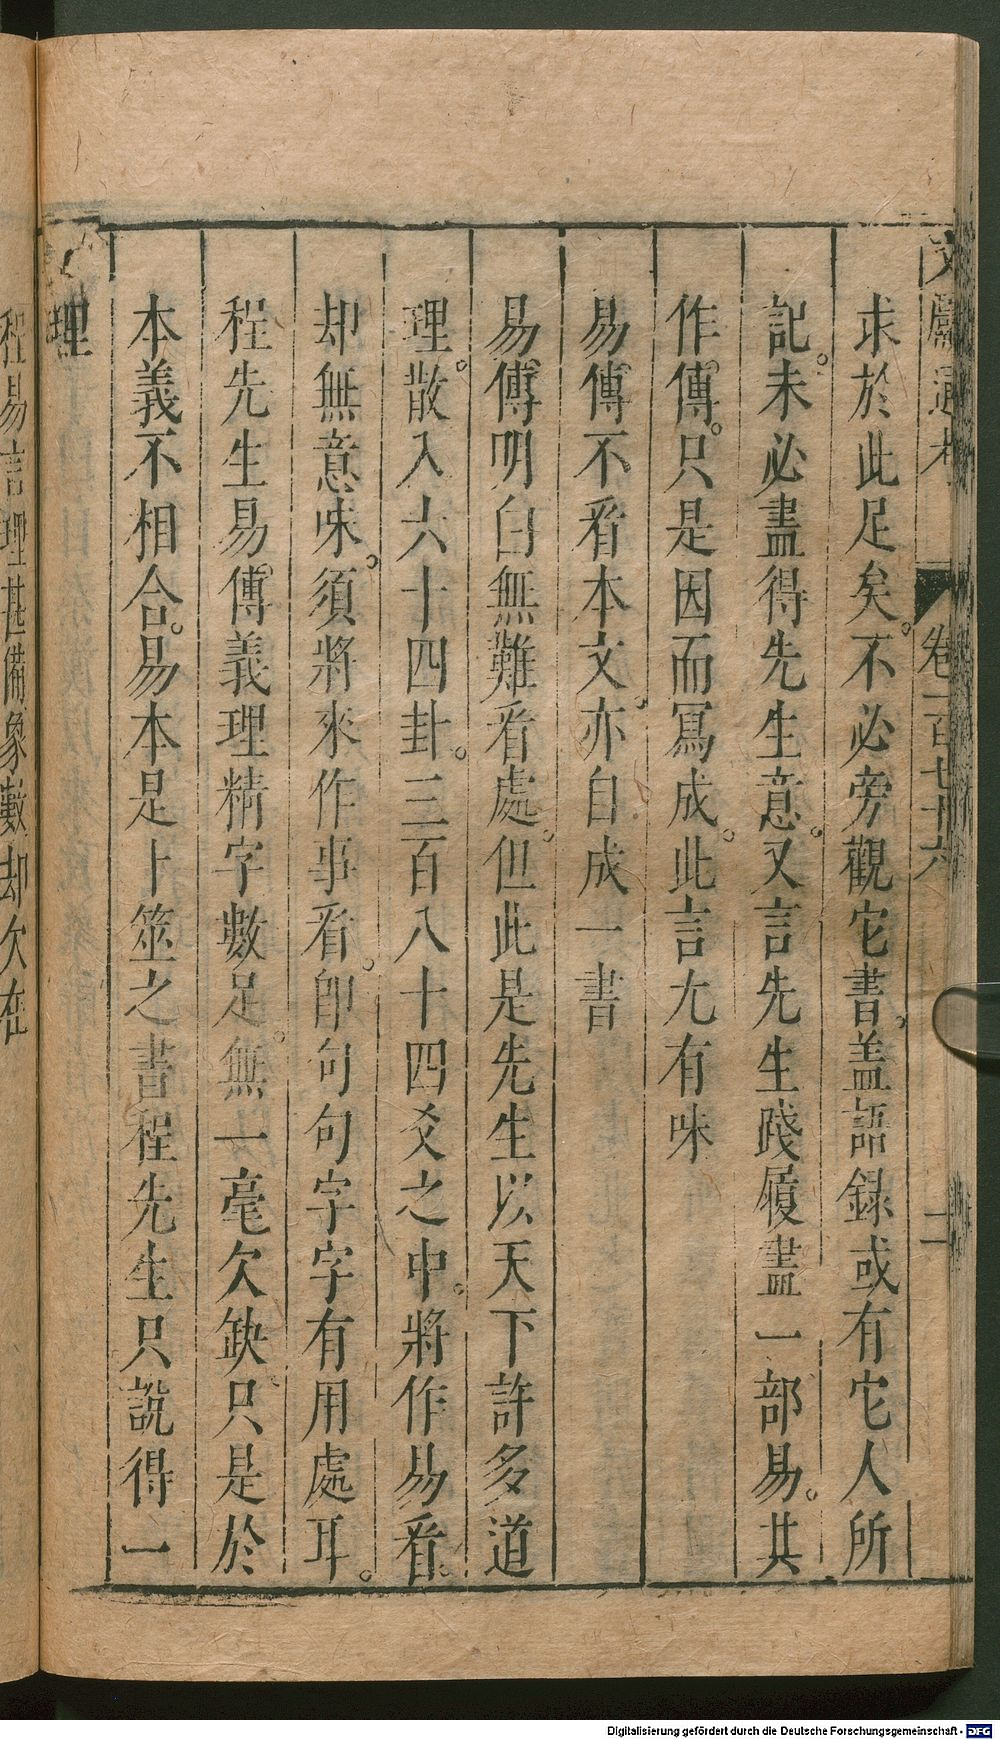 文獻通考 卷一百七十六 二
求於此足矣。不必旁觀它書。蓋語録或有它人所
記。未必盡得先生意。又言先生踐履盡一部易。其
作傳。只是因而寫成。此言尤有味
易傳不看本文。亦自成一書
易傳明白無難看處。但此是先生以天下許多道
理。散入六十四卦。三百八十四爻之中。將作易看。
却無意味。須將來作事看。卽句句字字有用處耳。
程先生易傳義理精字數足。無一毫欠缺。只是於
本義不相合。易本是卜筮之書程先生只說得一
理
程易言理甚備象數却欠在
Digitalisierung gefördert durch die Deutsche Forschungsgemeinschaft - DFG